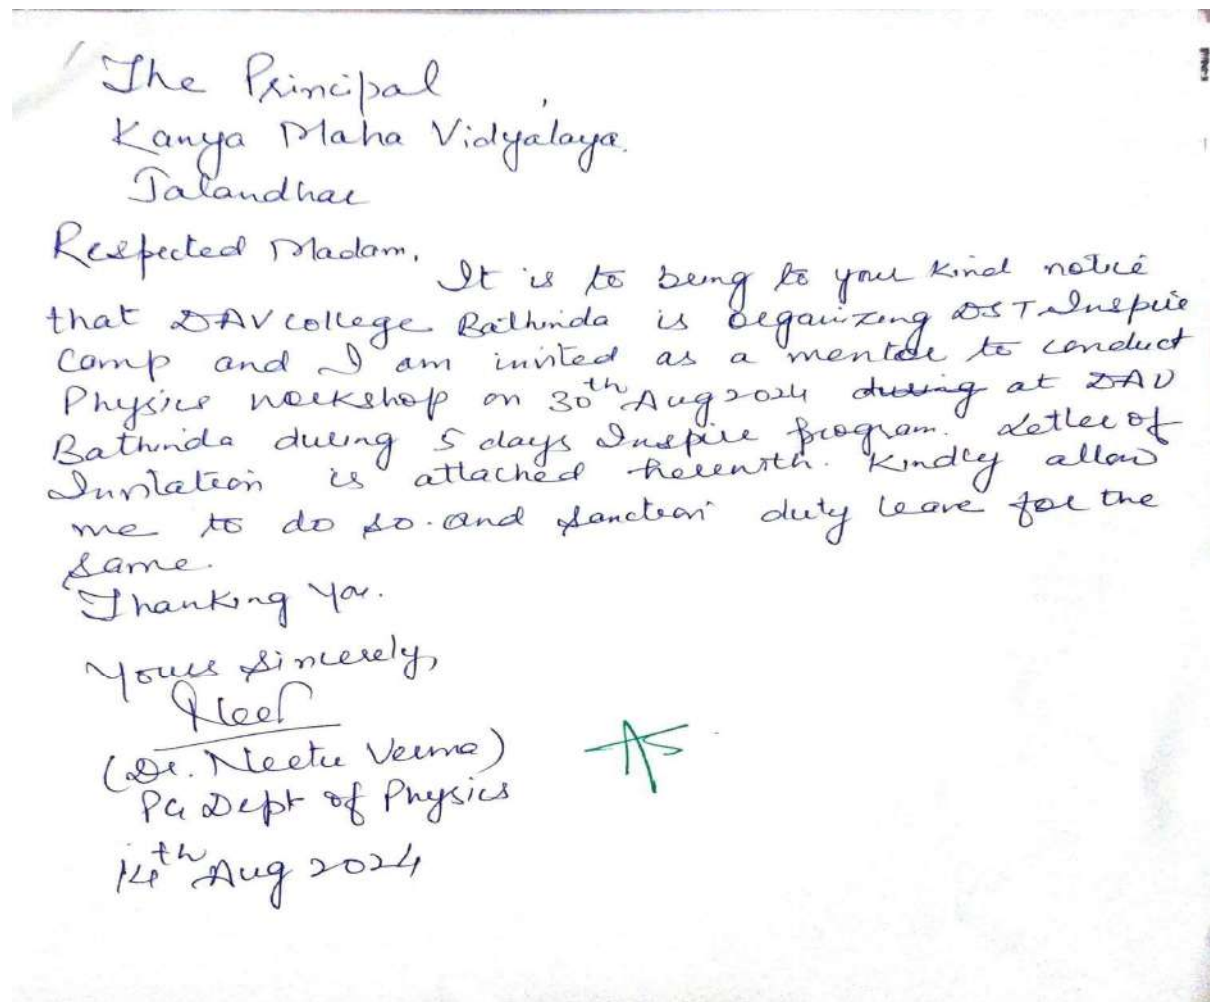 The Principal
Kanya Maha Vidyalaya.
Jalandhar
Respected Madam,
It is to bring to your kind notice
that DAV college Bathinda is organizing DST Inspire
Camp and I am invited as a mentor to conduct
Physics workshop on 30th Aug 2024 during at DAV
Bathinda during 5 days Inspire program. Letter of
Invitation is attached herewith. Kindly allow
me to do so. and sanction duty leave for the
same.
Thanking You.
Yours Sincerely,
(Dr. Neetu Verma)
PG Dept of Physics
14th Aug 2024